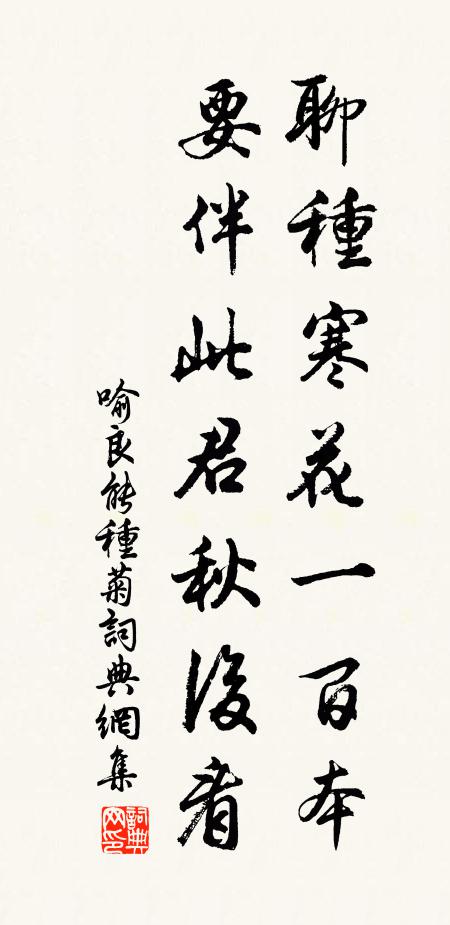 聊種寒花一百本
要伴此君秋後看
喻良能種菊詞典網集
詞典网印